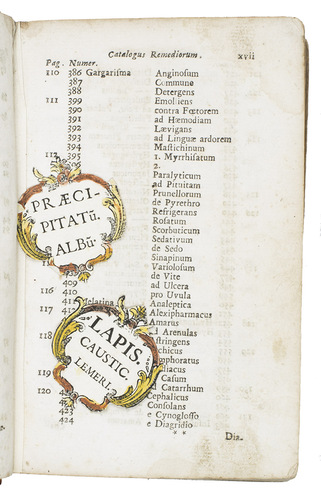 Catalogus Remediorum. xvii
Pag. Numer.
110 386 Gargarisma Anginosum
387 Commune
388 Detergens
111 389 Emolliens
390 contra Fœtorem
391 ad Hæmodiam
392 Lævigans
393 ad Linguæ ardorem
394 Mastichinum
112 395 1. Myrrhisatum
2.
Paralyticum
ad Pituitam
Prunellorum
de Pyrethro
Refrigerans
Rosatum
Scorbuticum
Sedativum
de Sedo
Sinapinum
Variolosum
de Vite
409 ad Ulcera
116 410 pro Uvula
Gelatina Analeptica
117 Alexipharmacus
Amarus
Arenulas
118 stringens
phoratus
iacus
119 Casum
Catarrhum
120 Cephalicus
Consolans
423 e Cynoglosso
424 e Diagridio
** Dia.
PRÆCI-
PITATŪ.
ALBŪ.
LAPIS.
CAUSTIC.
LEMERI.